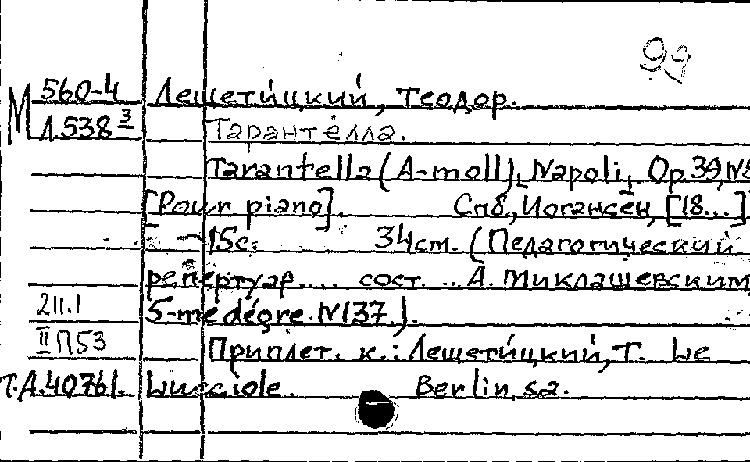 99
560-4 Лешети́цкий, Теодор.
М Л 538 3 Таранте́лла.
Tarantella (A-moll), Napoli, Op. 39, №5
[Pour piano]. Спб., Иогансен, [18...]
15с. 34см. (Педагогический
репертуар.... сост. .. А. Миклашевским
211.1 5-me dégre. №137.).
II П53 Приплет. к.: Лешети́цкий, Т. Le
Т.А.40761. Lucciole. Berlin, s.a.